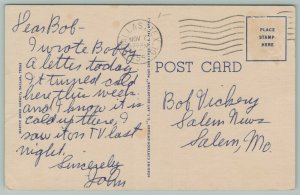 Dear Bob-
I wrote Bobby
a letter today
It turned cold
here this week.
and I know it is
cold up there. I
saw it on TV last
night.
Sincerely
John
NOV
POST CARD
PLACE
STAMP
HERE
Bob Vickery
Salem News
Salem, Mo.